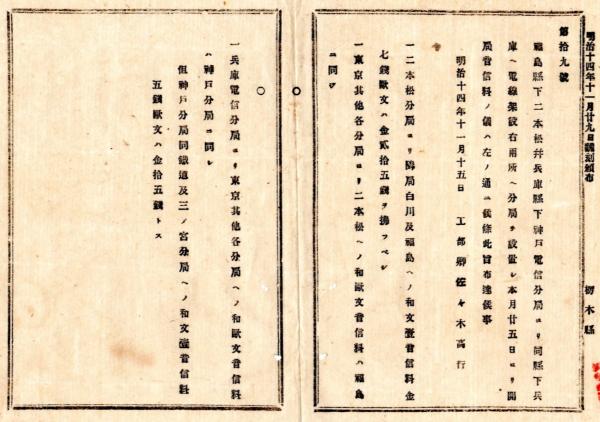 明治十四年十一月廿九日飜刻頒布
栃木縣
第拾九號
福島縣下二本松幷兵庫縣下神戶電信分局ヨリ同縣下兵
庫ヘ電線架設右兩所ヘ分局ヲ設置シ本月廿五日ヨリ開
局音信料ノ儀ハ左ノ通候條此旨布達候事
明治十四年十一月十五日
工部卿佐々木高行
一二本松分局ヨリ隣局白川及福島ヘノ和文壹音信料金
七錢歐文ハ金貳拾五錢ヲ拂フベシ
一東京其他各分局ヨリ二本松ヘノ和歐文音信料ハ福島
ニ同シ
○
○
一兵庫電信分局ヨリ東京其他各分局ヘノ和歐文音信料
ハ神戶分局ニ同シ
但神戶分局同鐵道及三ノ宮分局ヘノ和文壹音信料
五錢歐文ハ金拾五錢トス